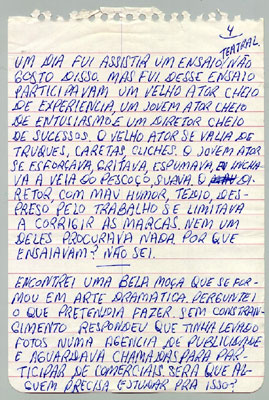 4
UM DIA FUI ASSISTIR UM ENSAIO TEATRAL. NÃO
GOSTO DISSO. MAS FUI. DESSE ENSAIO
PARTICIPAVAM UM VELHO ATOR CHEIO
DE EXPERIENCIA, UM JOVEM ATOR CHEIO
DE ENTUSIASMO E UM DIRETOR CHEIO
DE SUCESSOS. O VELHO ATOR SE VALIA DE
TRUQUES, CARETAS, CLICHÊS. O JOVEM ATOR
SE ESFORÇAVA, GRITAVA, ESPUMAVA, INCHA-
VA A VEIA DO PESCOÇO, SUAVA. O DI-
RETOR, COM MAU HUMOR, TÉDIO, DES-
PRESO PELO TRABALHO SE LIMITAVA
A CORRIGIR AS MARCAS. NEM UM
DELES PROCURAVA NADA. POR QUE
ENSAIAVAM? NÃO SEI.
ENCONTREI UMA BELA MOÇA QUE SE FOR-
MOU EM ARTE DRAMATICA. PERGUNTEI
O QUE PRETENDIA FAZER. SEM CONSTRAN-
GIMENTO RESPONDEU QUE TINHA LEVADO
FOTOS NUMA AGENCIA DE PUBLICIDADE
E AGUARDAVA CHAMADAS PARA PAR-
TICIPAR DE COMERCIAIS. SERÁ QUE AL-
GUEM PRECISA ESTUDAR PRA ISSO?